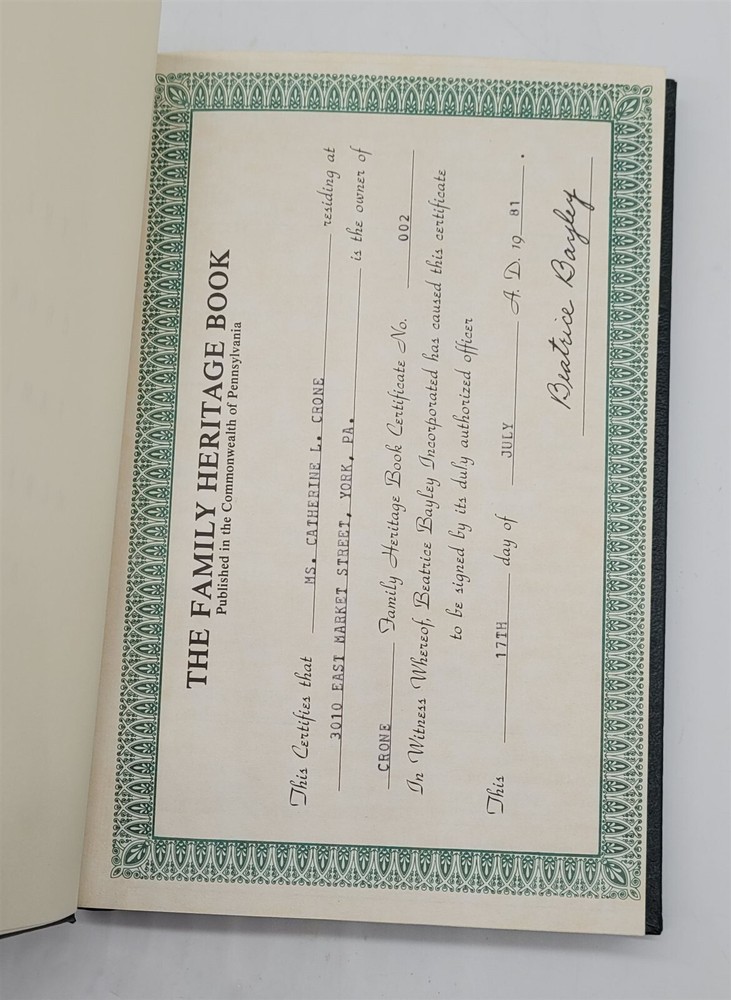 THE FAMILY HERITAGE BOOK
Published in the Commonwealth of Pennsylvania
This Certifies that MS. CATHERINE L. CRONE residing at
3010 EAST MARKET STREET, YORK, PA. is the owner of
CRONE Family Heritage Book Certificate No. 002
In Witness Whereof, Beatrice Bayley Incorporated has caused this certificate
to be signed by its duly authorized officer
This 17TH day of JULY A. D. 19 81 .
Beatrice Bayley